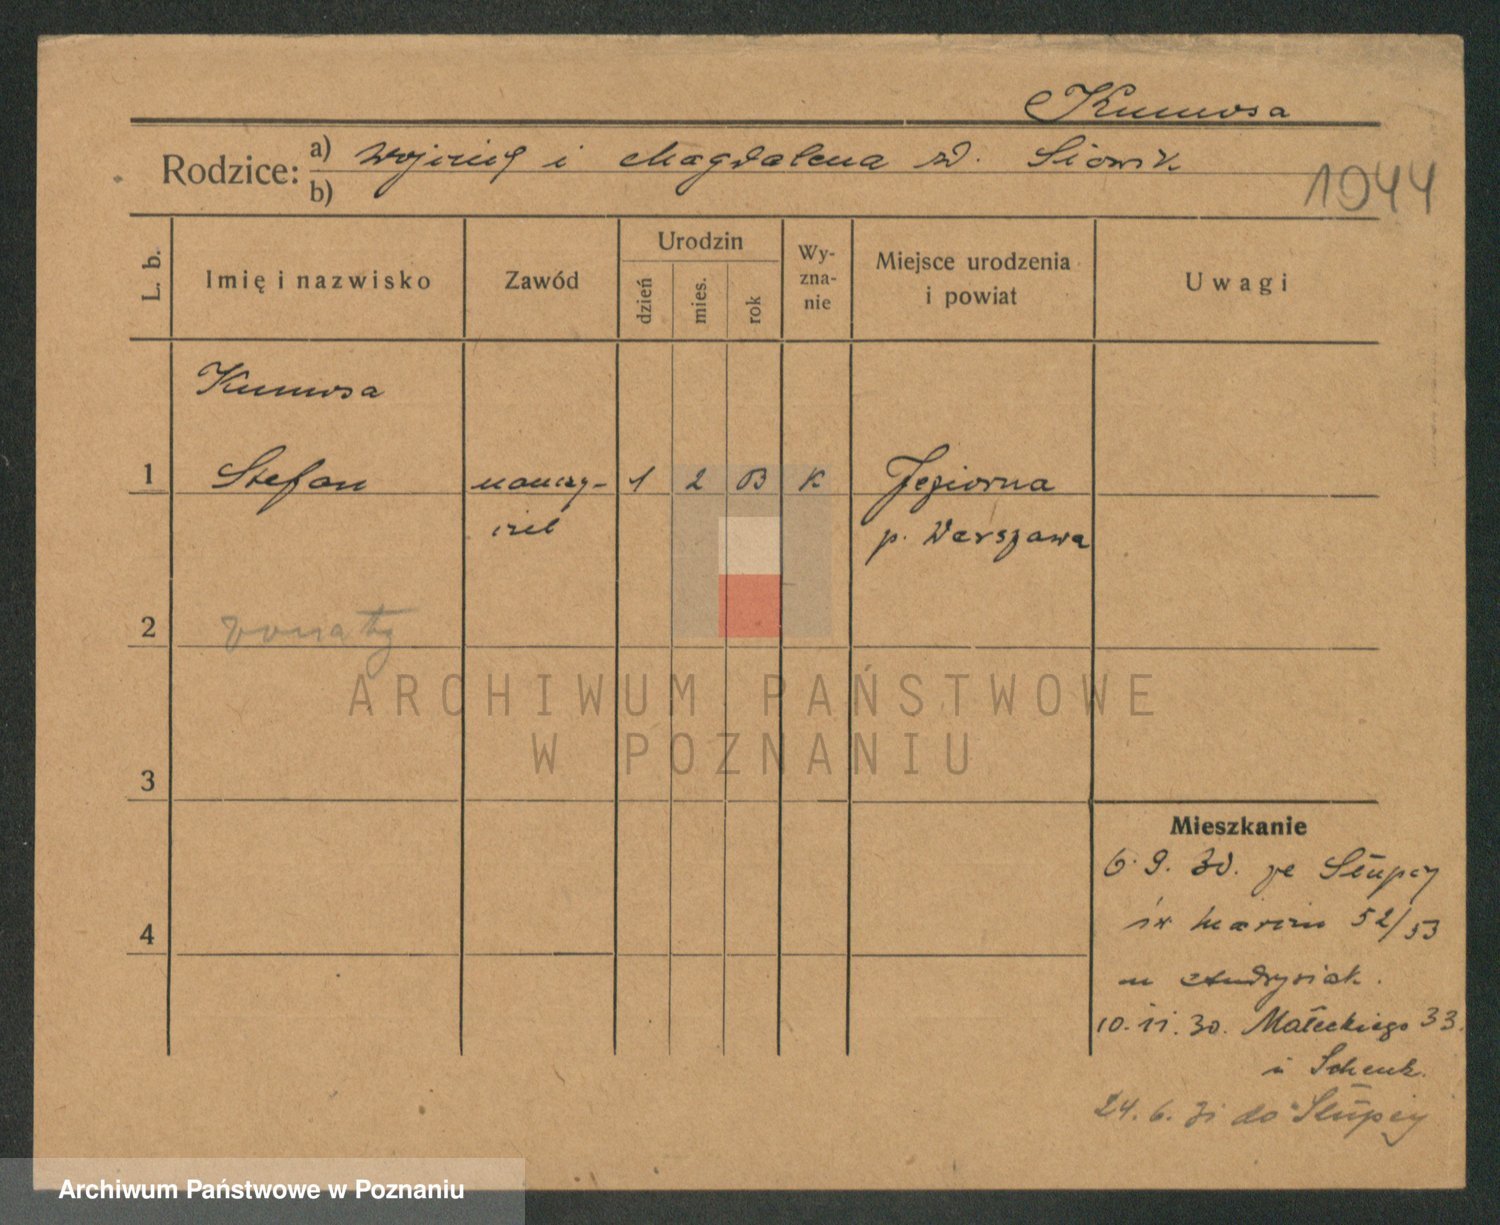 Kumosa
Rodzice: a) Wojciech i Magdalena zd. Siowik
b)
1944
L. b. Imię i nazwisko Zawód Urodzin dzień mies. rok Wy-zna-nie Miejsce urodzenia i powiat Uwagi
Kumosa
1 Stefan nauczy- 1 2 03 K Jeziorna
ciel p. Warszawa
2 żonaty
ARCHIWUM PAŃSTWOWE
W POZNANIU
3
Mieszkanie
6.9.30. ze Słupcy
4 św Marcin 52/53
u Andrysiak.
10.11.30. Małeckiego 33.
u Schenk.
24.6.31 do Słupcy
Archiwum Państwowe w Poznaniu